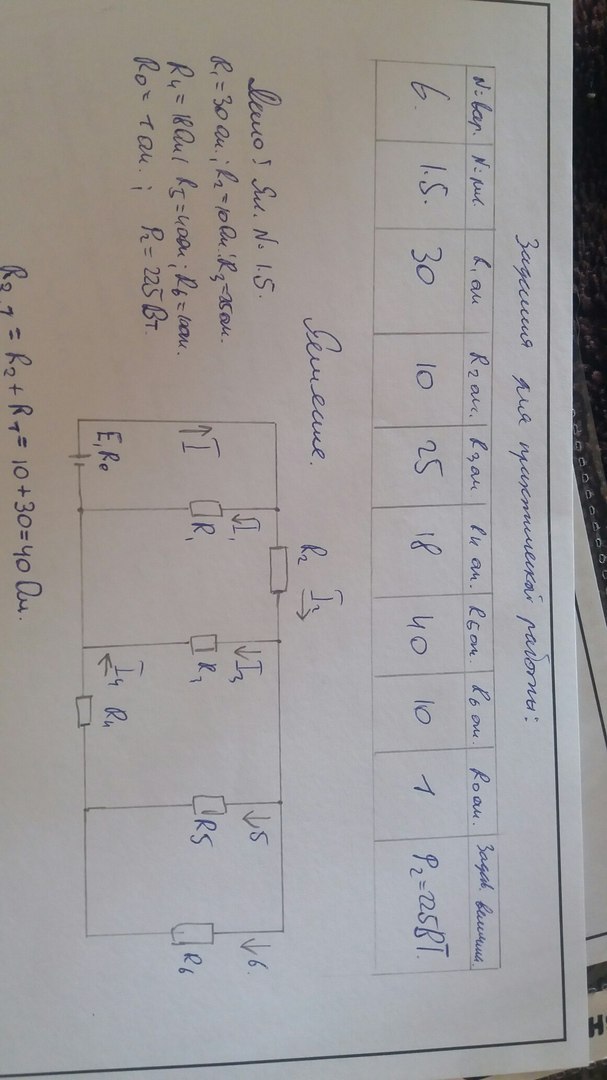 Задания для практической работы:
N=вар. N=рис. R1 ом R2 ом. R3 ом R4 ом. R5 ом. R6 ом. R0 ом. Задав. величина.
6. 1.5. 30 10 25 18 40 10 1 P2=225ВТ.
Решение.
Дано: Рис. N=1.5.
R1=30 Ом.; R2=10 Ом; R3=25 Ом.
R4=18 Ом; R5=40 Ом; R6=10 Ом.
R0=1 Ом.; P2=225Вт.
R2 I2
I I1 I3 5 6.
R1 R3 R5 R6
E, R0 I4 R4
R2.1 = R2 + R1 = 10+30=40 Ом.
Н